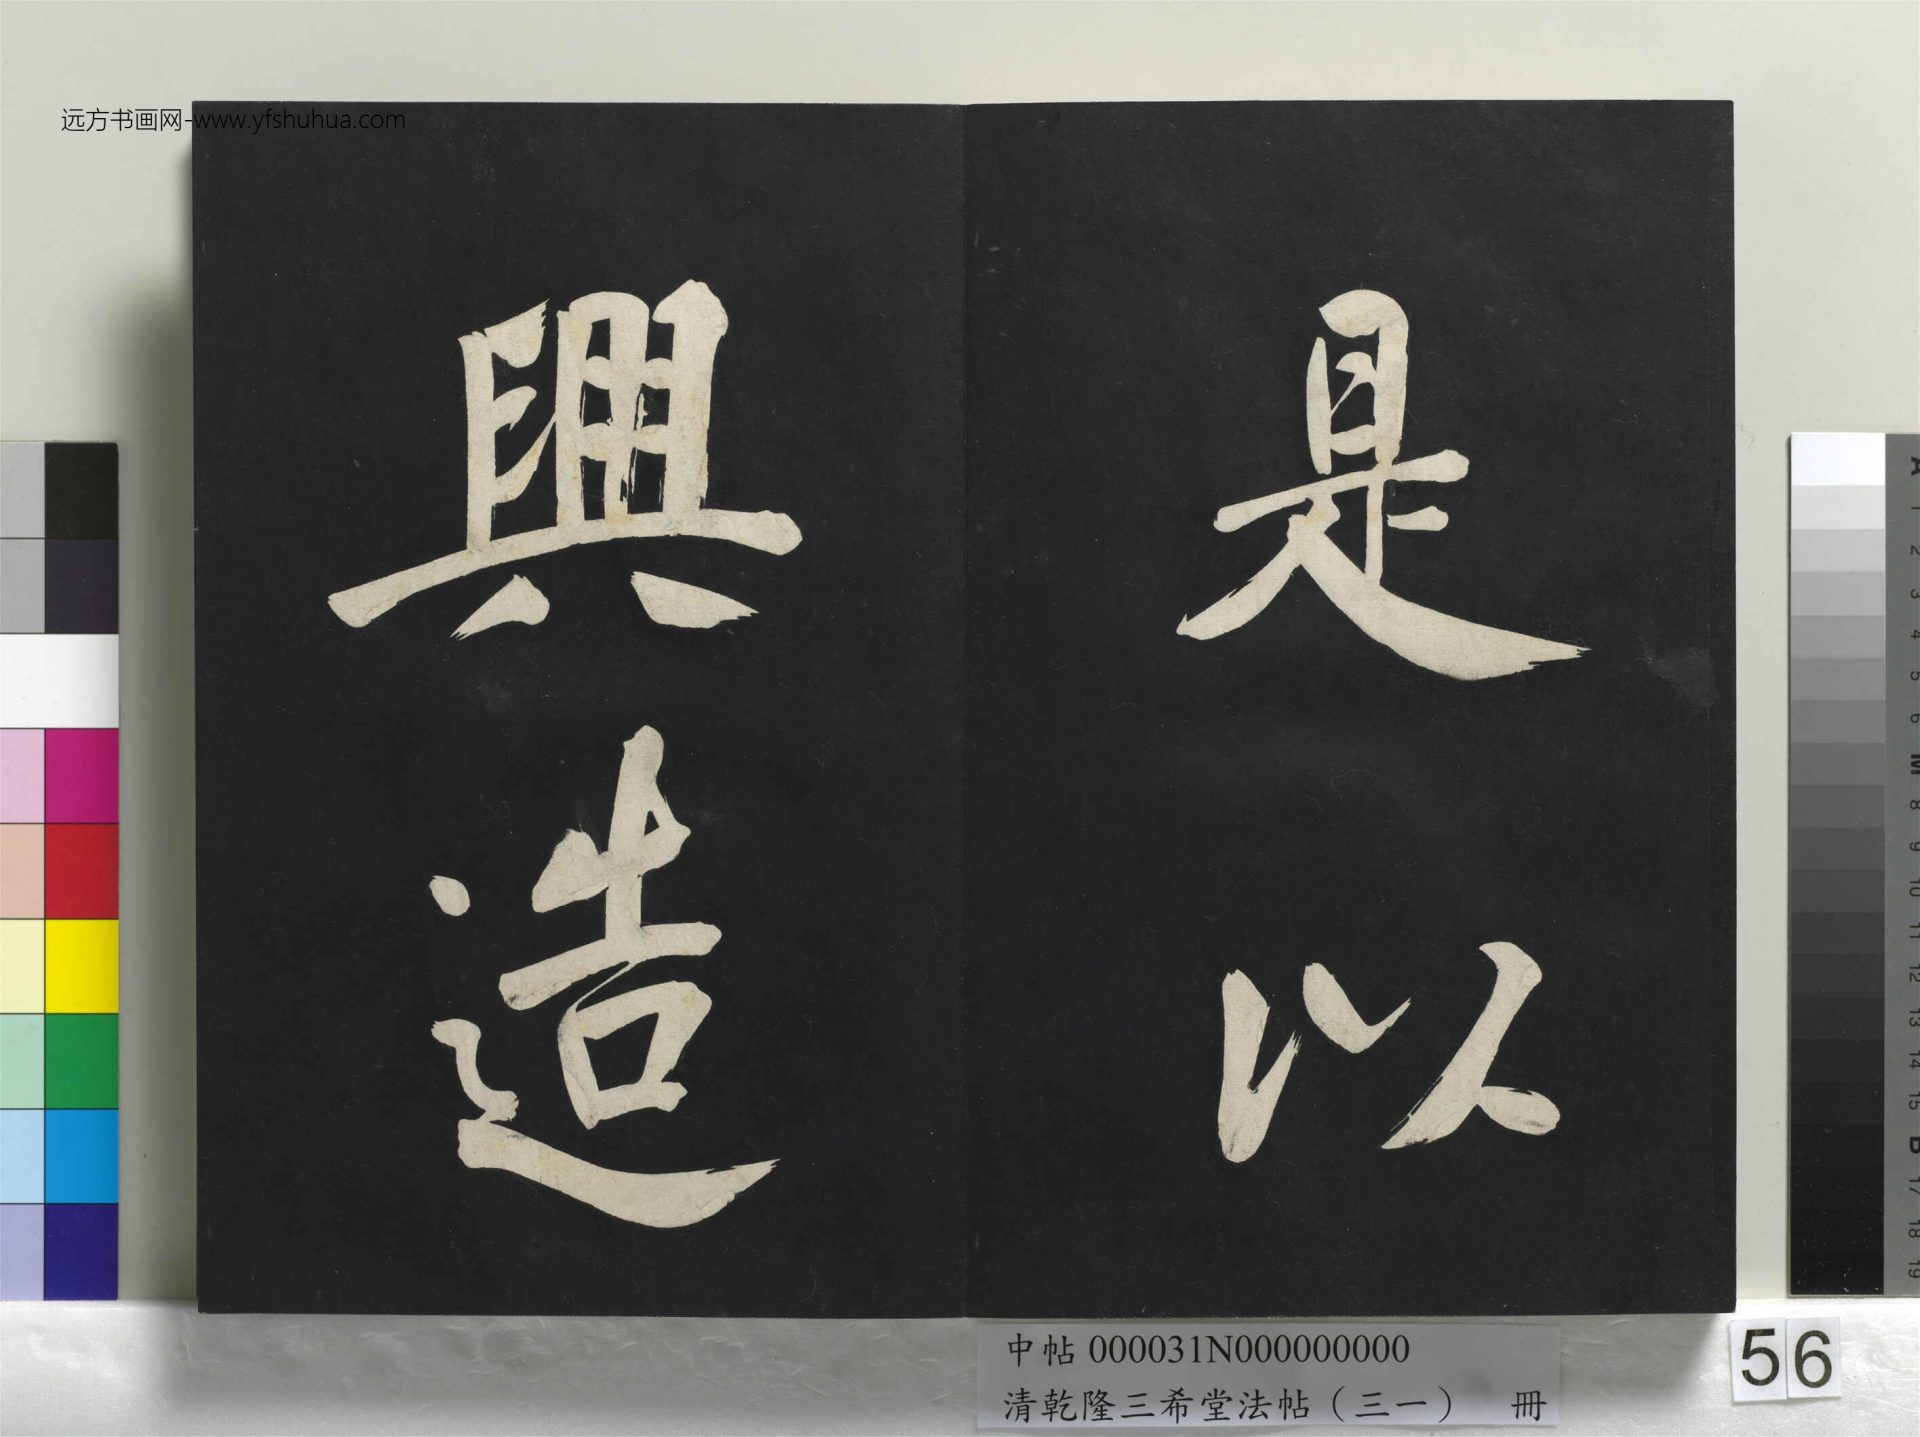 远方书画网-www.yfshuhua.com
是以
興造
中帖 000031N000000000
清乾隆三希堂法帖（三一） 冊
56
A
1
2
3
4
5
6
M
8
9
10
11
12
13
14
15
B
17
18
19